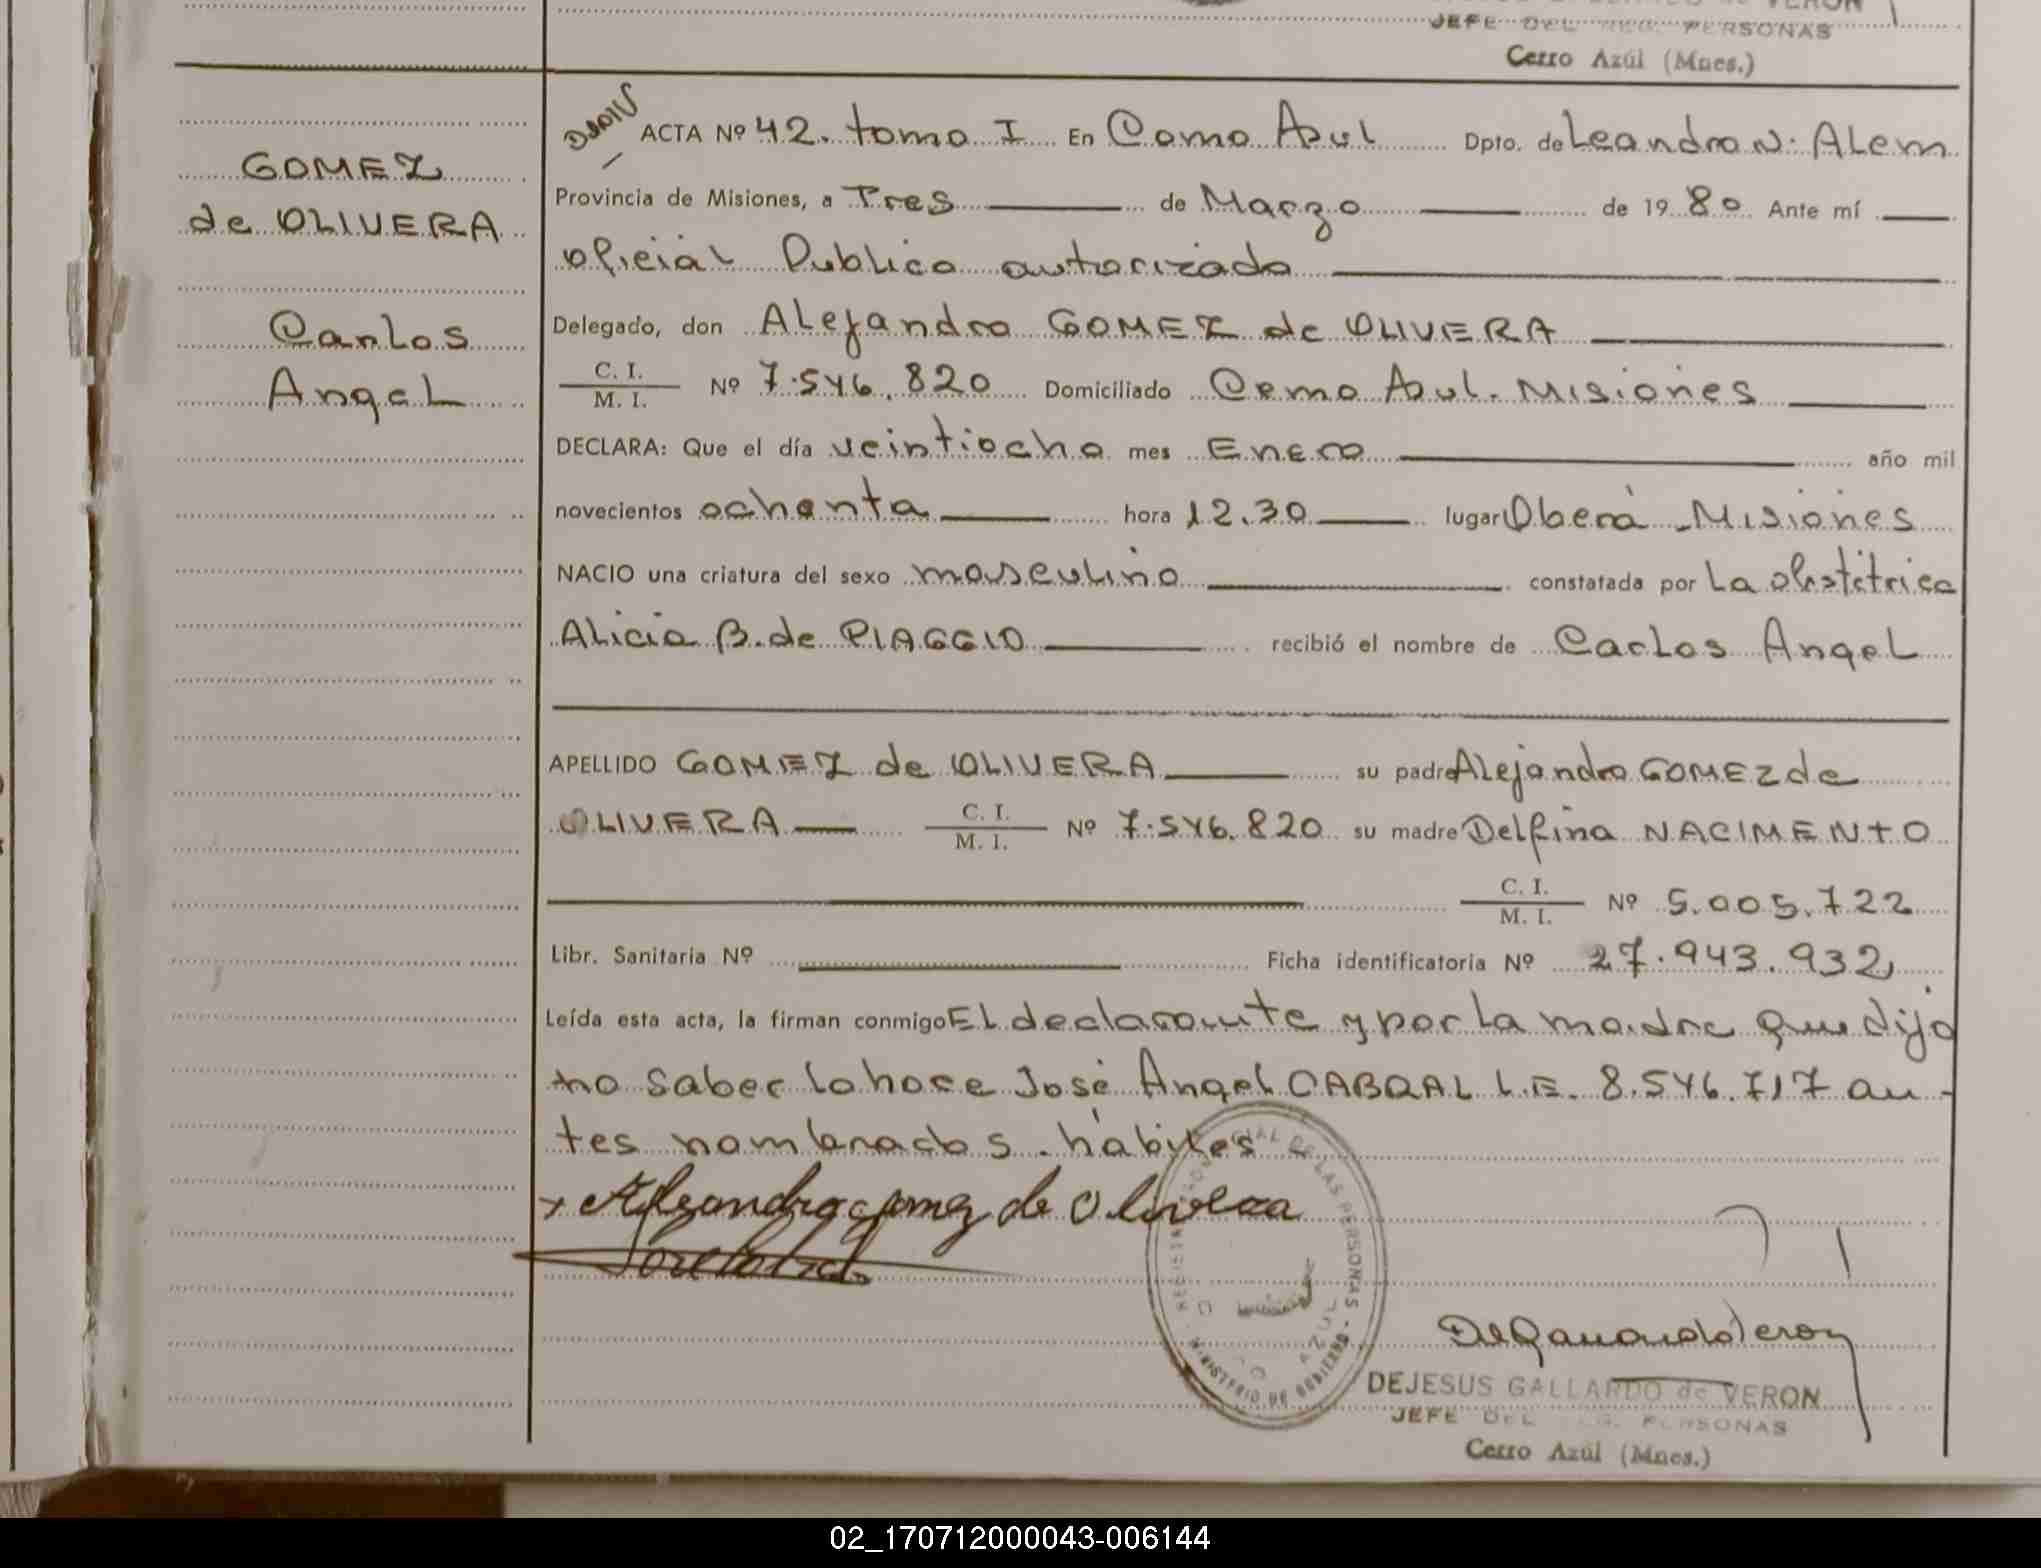 de VERON
JEFE DEL REG. PERSONAS
Cerro Azúl (Mnes.)
GOMEZ
de OLIVERA
Carlos
Angel
ACTA Nº 42. tomo I En Cerro Azul Dpto. de Leandro N. Alem
Provincia de Misiones, a Tres de Marzo de 1980 Ante mí
oficial Publico autorizado
Delegado, don Alejandro GOMEZ de OLIVERA
C. I.
M. I. Nº 7.546.820 Domiciliado Cerro Azul. Misiones
DECLARA: Que el día veintiocho mes Enero año mil
novecientos ochenta hora 12.30 lugar Oberá - Misiones
NACIO una criatura del sexo masculino constatada por La obstétrica
Alicia B. de PIAGGIO recibió el nombre de Carlos Angel
APELLIDO GOMEZ de OLIVERA su padre Alejandro GOMEZ de
OLIVERA C. I.
M. I. Nº 7.546.820 su madre Delfina NACIMENTO
C. I.
M. I. Nº 5.005.722
Libr. Sanitaria Nº Ficha identificatoria Nº 27.943.932
Leída esta acta, la firman conmigo El declarante y por la madre que dijo
no saber lo hace José Angel CABRAL L.E. 8.546.717 an-
tes nombrados. hábiles
Alejandro gomez de Olivera
REGISTRO PROVINCIAL DE LAS PERSONAS - MINISTERIO DE GOBIERNO
CERRO AZUL
DEJESUS GALLARDO de VERON
JEFE DEL REG. PERSONAS
Cerro Azúl (Mnes.)
02_170712000043-006144